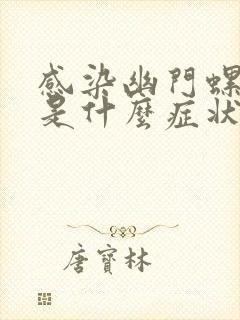 感染幽門螺
是什麼症狀
唐寶林